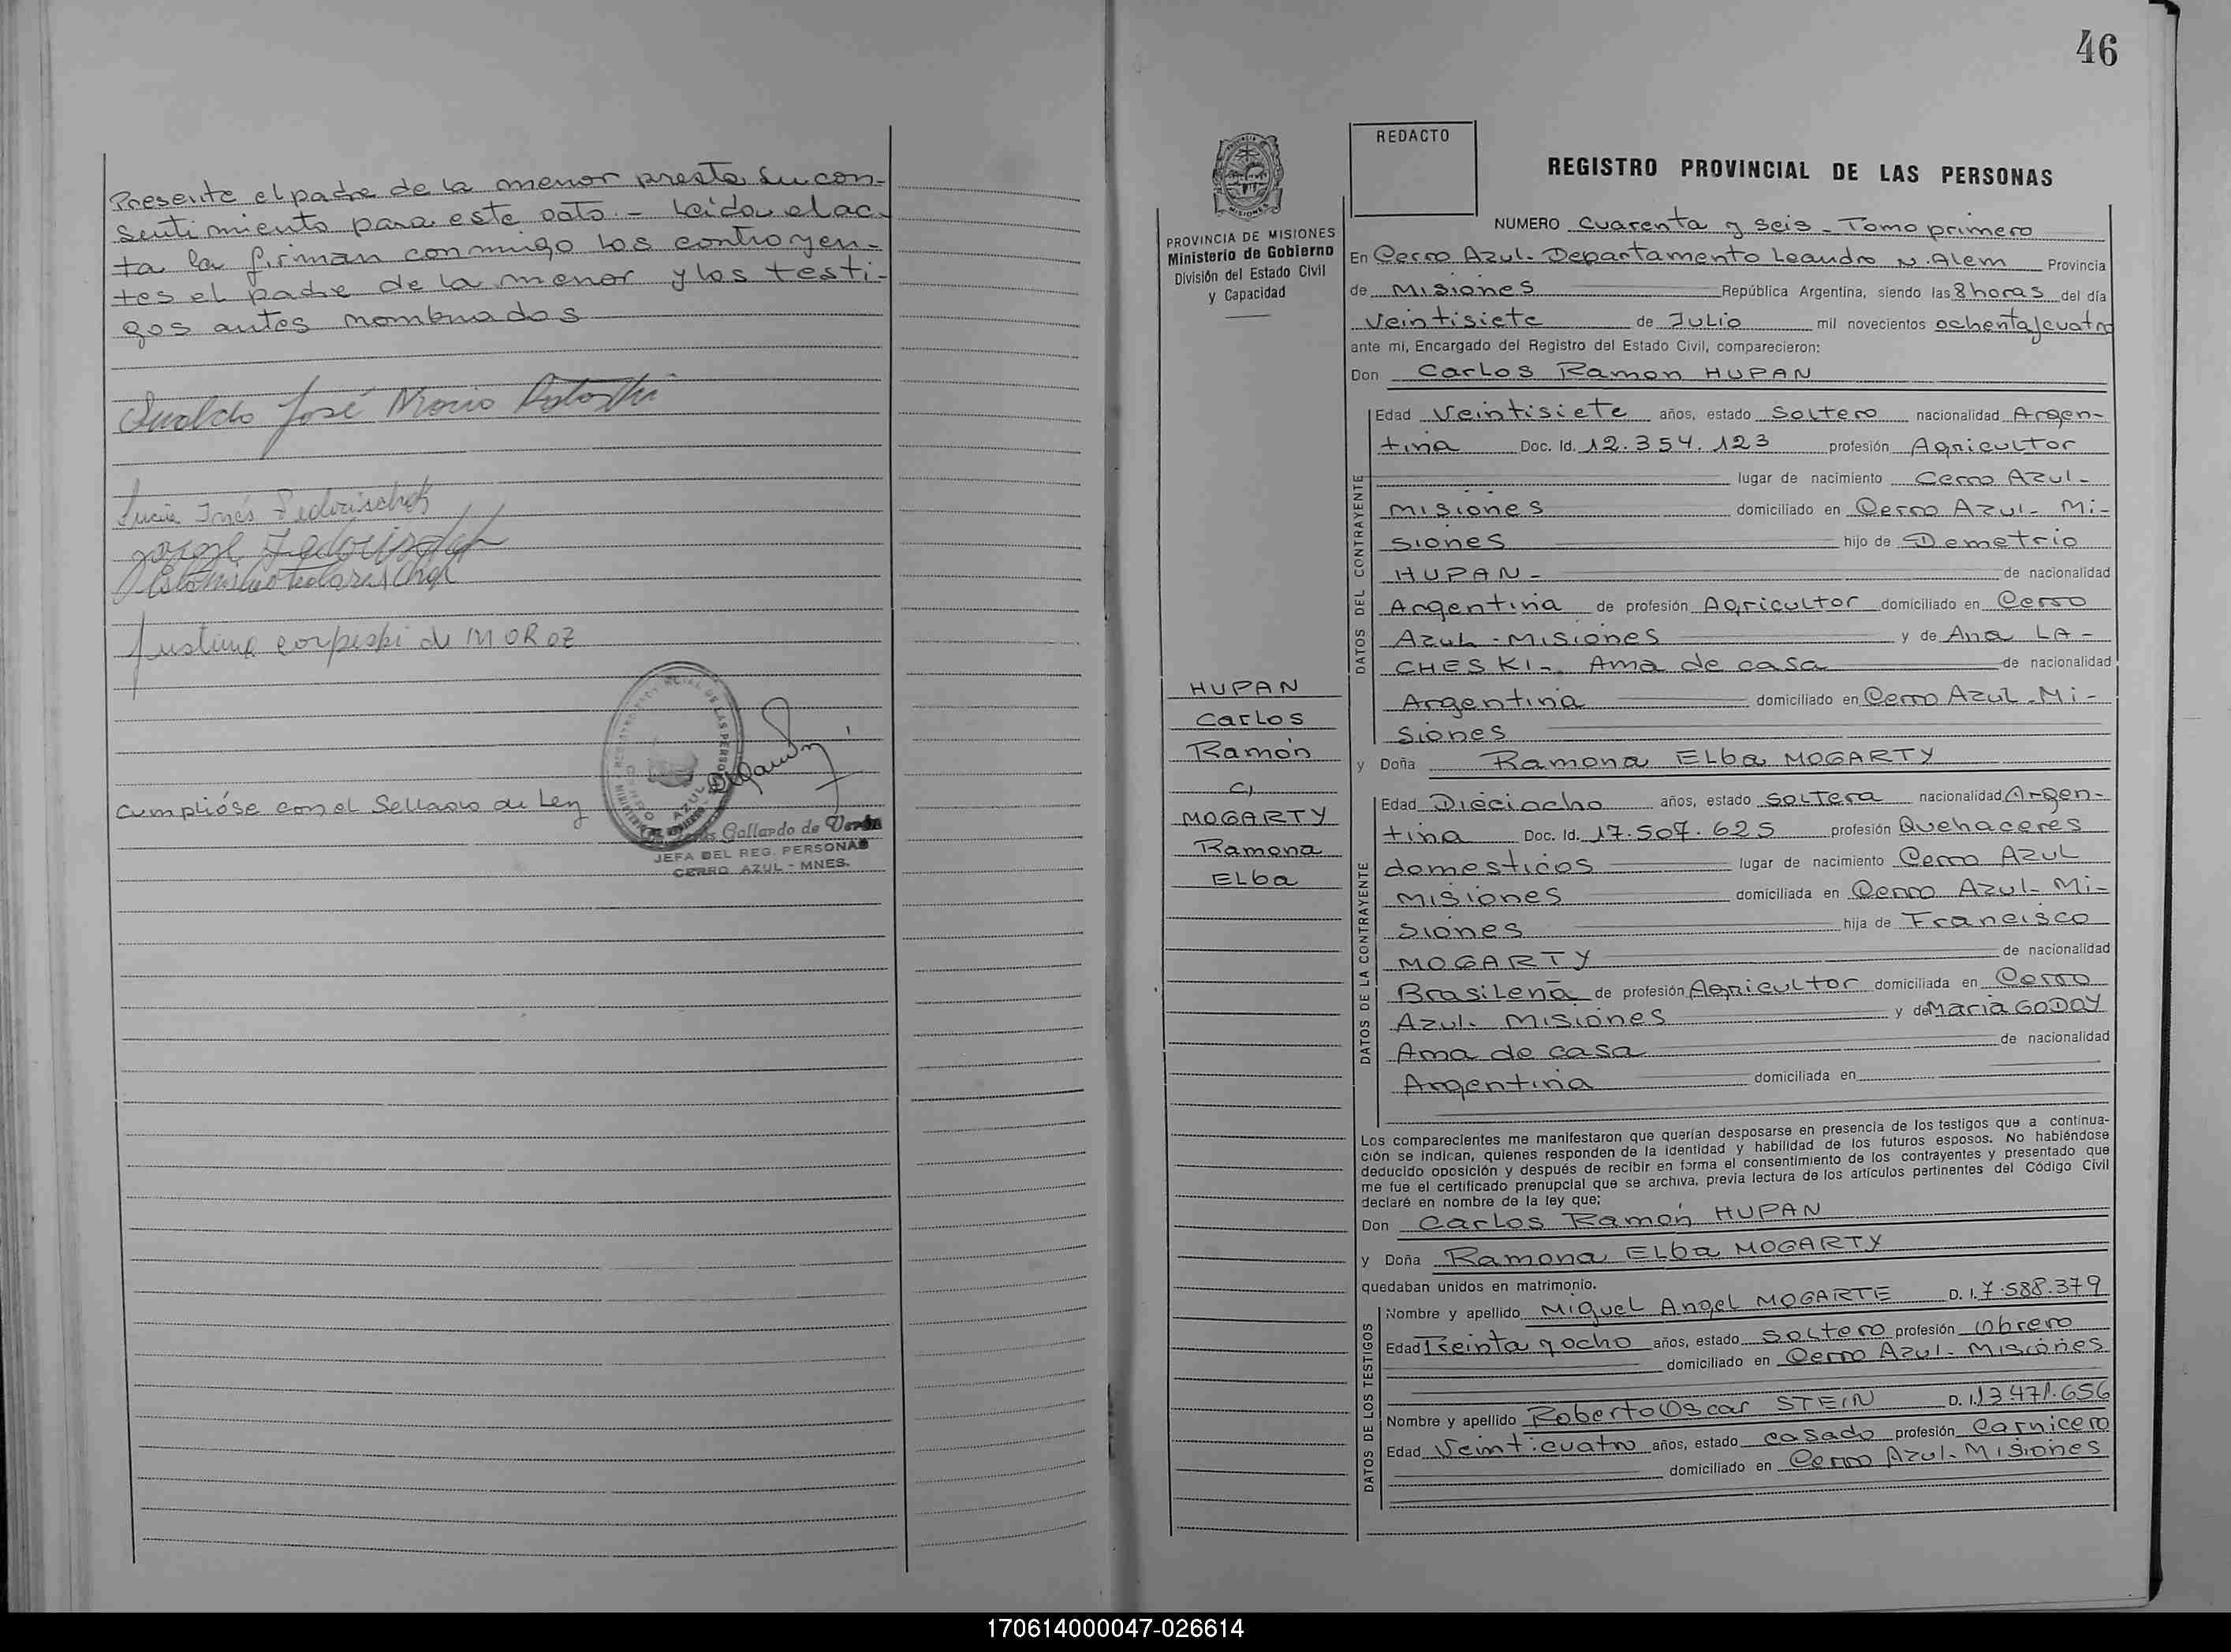 Presente el padre de la menor presta su con-
sentimiento para este acto.- Leída el ac-
ta la firman conmigo los contrayen-
tes el padre de la menor y los testi-
gos antes nombrados
José Mario
Lucia Inés
Jorge
de MOROZ
Cumplióse con el Sellado de Ley
Gallardo de Verón
JEFA DEL REG. PERSONAS
CERRO AZUL - MNES.
46
REDACTO
MISIONES
PROVINCIA DE MISIONES
Ministerio de Gobierno
División del Estado Civil
y Capacidad
HUPAN
Carlos
Ramón
c/
MOGARTY
Ramona
Elba
REGISTRO PROVINCIAL DE LAS PERSONAS
NUMERO Cuarenta y seis - Tomo primero
En Cerro Azul. Departamento Leandro N. Alem Provincia
de Misiones República Argentina, siendo las 8 horas del día
Veintisiete de Julio mil novecientos ochenta y cuatro
ante mi, Encargado del Registro del Estado Civil, comparecieron:
Don Carlos Ramon HUPAN
DATOS DEL CONTRAYENTE
Edad Veintisiete años, estado Soltero nacionalidad Argen-
tina Doc. Id. 12.354.123 profesión Agricultor
lugar de nacimiento Cerro Azul-
Misiones domiciliado en Cerro Azul- Mi-
siones hijo de Demetrio
HUPAN- de nacionalidad
Argentina de profesión Agricultor domiciliado en Cerro
Azul - Misiones y de Ana LA-
CHESKI- Ama de casa de nacionalidad
Argentina domiciliado en Cerro Azul - Mi-
siones
y Doña Ramona Elba MOGARTY
DATOS DE LA CONTRAYENTE
Edad Dieciocho años, estado Soltera nacionalidad Argen-
tina Doc. Id. 17.507.625 profesión Quehaceres
domesticos lugar de nacimiento Cerro Azul
Misiones domiciliada en Cerro Azul- Mi-
siones hija de Francisco
MOGARTY de nacionalidad
Brasileña de profesión Agricultor domiciliada en Cerro
Azul. Misiones y de Maria GODOY
Ama de casa de nacionalidad
Argentina domiciliada en
Los comparecientes me manifestaron que querían desposarse en presencia de los testigos que a continua-
ción se indican, quienes responden de la identidad y habilidad de los futuros esposos. No habiéndose
deducido oposición y después de recibir en forma el consentimiento de los contrayentes y presentado que
me fue el certificado prenupcial que se archiva, previa lectura de los artículos pertinentes del Código Civil
declaré en nombre de la ley que:
Don Carlos Ramón HUPAN
y Doña Ramona Elba MOGARTY
quedaban unidos en matrimonio.
DATOS DE LOS TESTIGOS
Nombre y apellido Miguel Angel MOGARTE D. I. 7.588.379
Edad Treinta y ocho años, estado Soltero profesión Obrero
domiciliado en Cerro Azul - Misiones
Nombre y apellido Roberto Oscar STEIN D. I. 13.471.656
Edad Veinticuatro años, estado casado profesión Carnicero
domiciliado en Cerro Azul - Misiones
170614000047-026614